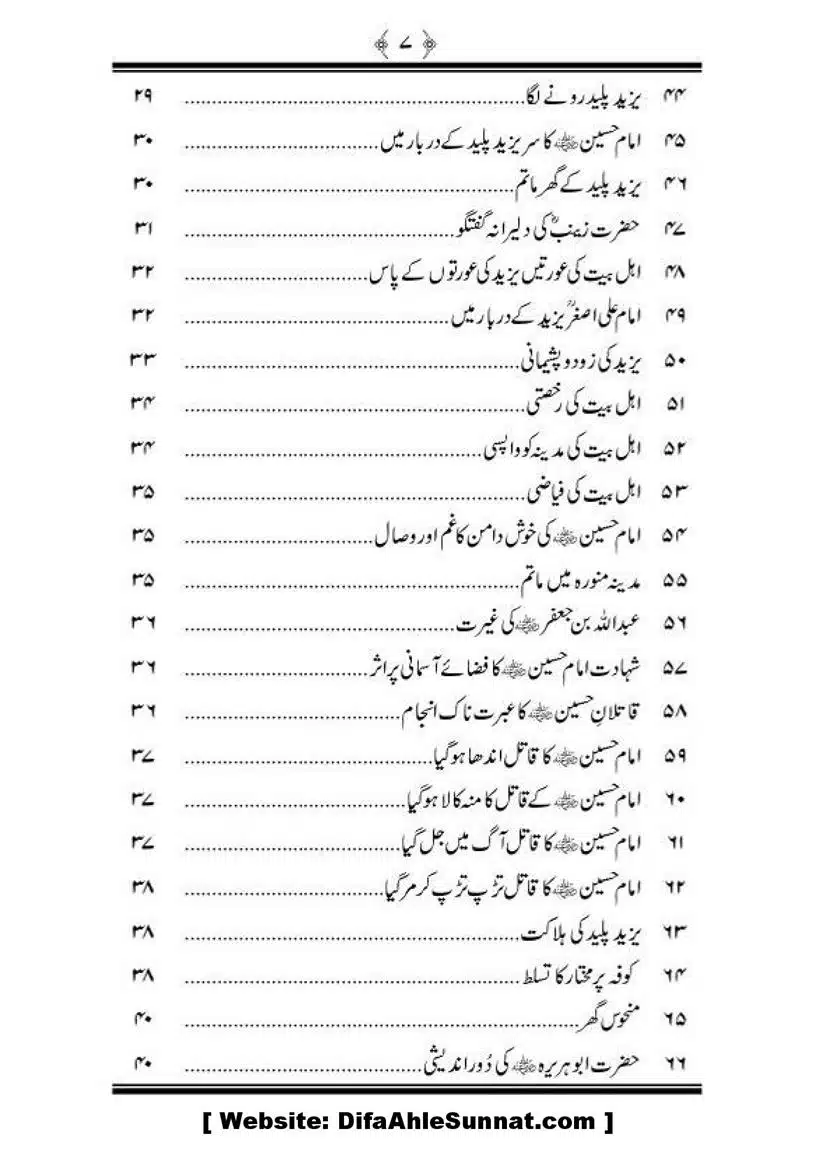 ﴿ ۷ ﴾
۴۴ یزید پلید رونے لگا ........ ۲۹
۴۵ امام حسین ؓ کا سر یزید پلید کے دربار میں ........ ۳۰
۴۶ یزید پلید کے گھر ماتم ........ ۳۰
۴۷ حضرت زینبؓ کی دلیرانہ گفتگو ........ ۳۱
۴۸ اہل بیت کی عورتیں یزید کی عورتوں کے پاس ........ ۳۲
۴۹ امام علی اصغرؓ یزید کے دربار میں ........ ۳۲
۵۰ یزید کی زود و پشیمانی ........ ۳۳
۵۱ اہل بیت کی رخصتی ........ ۳۴
۵۲ اہل بیت کی مدینہ کو واپسی ........ ۳۴
۵۳ اہل بیت کی فیاضی ........ ۳۵
۵۴ امام حسین ؓ کی خوش دامن کا غم اور وصال ........ ۳۵
۵۵ مدینہ منورہ میں ماتم ........ ۳۵
۵۶ عبداللہ بن جعفر ؓ کی غیرت ........ ۳۶
۵۷ شہادت امام حسین ؓ کا فضائے آسمانی پر اثر ........ ۳۶
۵۸ قاتلانِ حسین ؓ کا عبرت ناک انجام ........ ۳۶
۵۹ امام حسین ؓ کا قاتل اندھا ہو گیا ........ ۳۷
۶۰ امام حسین ؓ کے قاتل کا منہ کالا ہو گیا ........ ۳۷
۶۱ امام حسین ؓ کا قاتل آگ میں جل گیا ........ ۳۷
۶۲ امام حسین ؓ کا قاتل تڑپ تڑپ کر مر گیا ........ ۳۸
۶۳ یزید پلید کی ہلاکت ........ ۳۸
۶۴ کوفہ پر مختار کا تسلط ........ ۳۸
۶۵ منحوس گھر ........ ۴۰
۶۶ حضرت ابوہریرہ ؓ کی دُور اندیشی ........ ۴۰
[ Website: DifaAhleSunnat.com ]